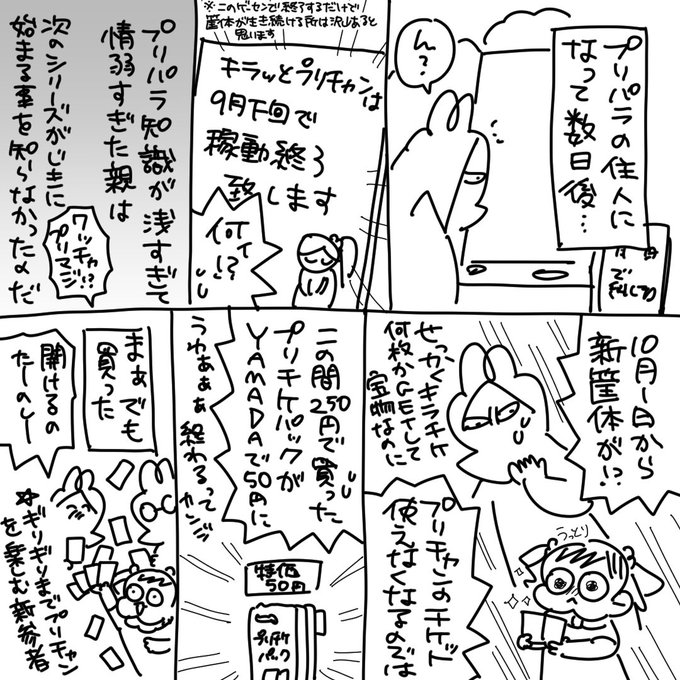 プリパラの住人に
なって数日後…
ん?
※このゲーセンで終了するだけで
筐体が生き続ける所は沢山あると
思います
キラッとプリチャンは
9月下旬で
稼動終了
致します
何ィ!?
プリパラ知識が浅すぎて
情弱すぎた親は
次のシリーズがじきに
始まる事を知らなかったのだ
ワッチャ
プリマジ!?
10月1日から
新筐体が!?
せっかくキラチケ
何枚かGETして
宝物なのに
プリチャンのチケット
使えなくなるのでは
うっとり
この間250円で買った
プリチケパックが
YAMADAで50円に
うわぁぁぁ終わるって
カンジ
特価
50円
パック
まぁでも
買った
開けるの
たーのしー
ギリギリまでプリチャン
を楽しむ新参者